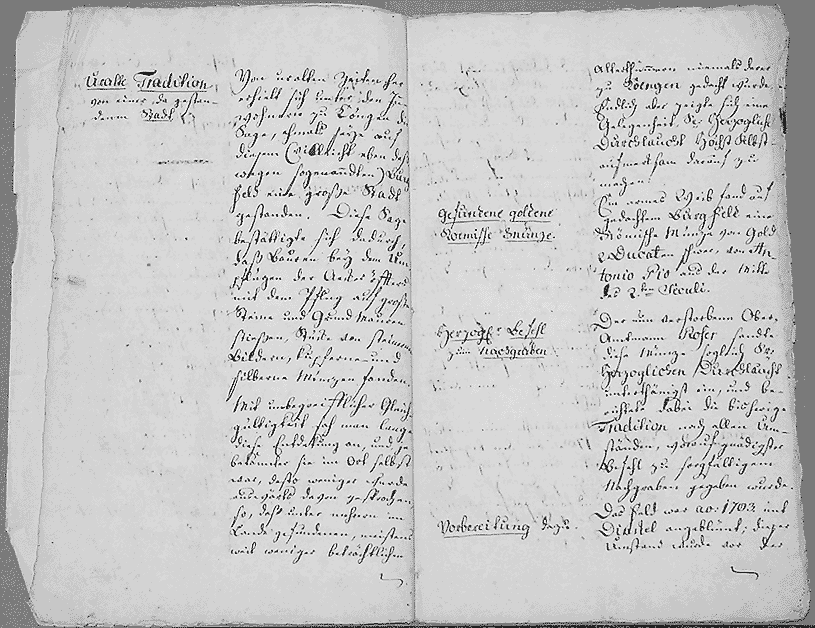 Uralte Tradition
von einer da gestan-
denen Stadt
Von uralten Zeiten her
erhielt sich unter den In-
wohnern zu Köngen die
Sage, ehmals seye auf
diesem (vielleicht eben deß-
wegen sogenannten) Burg
feld eine große Stadt
gestanden. Diese Sage
bestättigte sich dadurch,
daß Bauren bey dem Um-
pflügen der Aecker öffters
mit dem Pflug auf große
Steine und Grund Mauren
stießen, Stüke von steinernen
Bildern, kupferne und
silberne Münzen fanden.
Mit unbegreifflicher Gleich-
gültigkeit sah man lange
diese Entdekung an, und
bekannter sie im Ort selbst
war, desto weniger wurde
auswärts davon gesprochen
so, daß unter mehrern im
Lande gefundenen, meistens
weit weniger beträchtlichen
Alterthümern niemals derer
zu Köngen gedacht wurde.
Endlich aber zeigte sich eine
Gelegenheit Sr. Herzoglich
Durchlaucht Höchst Selbst
aufmerksam darauf zu
machen.
Gefundene goldene
Roemische Münze.
Ein armes Weib fand auf
gedachtem Burgfeld eine
Römische Münze von Gold
2 Ducaten schwer, von An-
tonio Pio aus der Mitte
des 2ten Seculi.
Herzogl. Befehl
zum Nachgraben
Der nun verstorbene Ober-
Amtmann Roser sandte
diese Münze sogleich Sr.
Herzoglichen Durchlaucht
unterthänigst ein, und be-
richtete dabei die bisherige
Tradition nach allen Um-
ständen, worauf gnädigster
Befehl zu sorgfältigem
Nachgraben gegeben wurde.
Vorbereitung dazu.
Das Feld war ao. 1783 mit
Dinkel angeblümt; dieser
Umstand wurde vor der